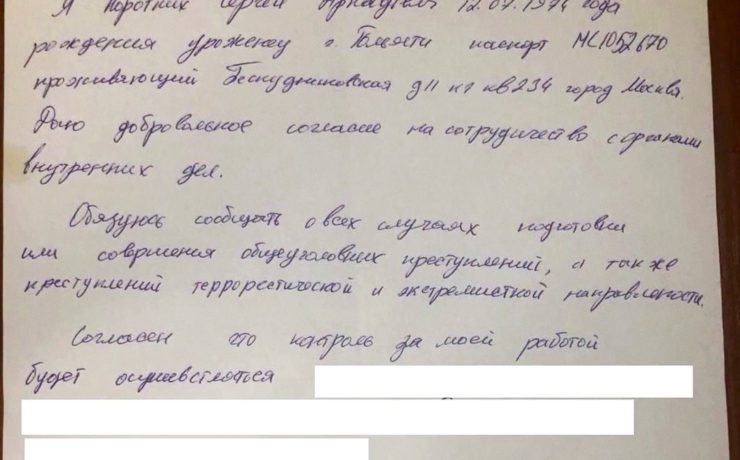 Я Коротких Сергей Аркадьевич 12.07.1974 года
рождения уроженец г. Тольятти паспорт МС1052670
проживающий Бескудниковская д11 к1 кв234 город Москва.
Даю добровольное согласие на сотрудичество с органами
внутренних дел.
Обязуюсь сообщать о всех случаях подготовки
или совершения общеуголовних преступлений, а также
преступлений террорестической и экстремисткой направлености.
Согласен что контроль за моей работой
будет